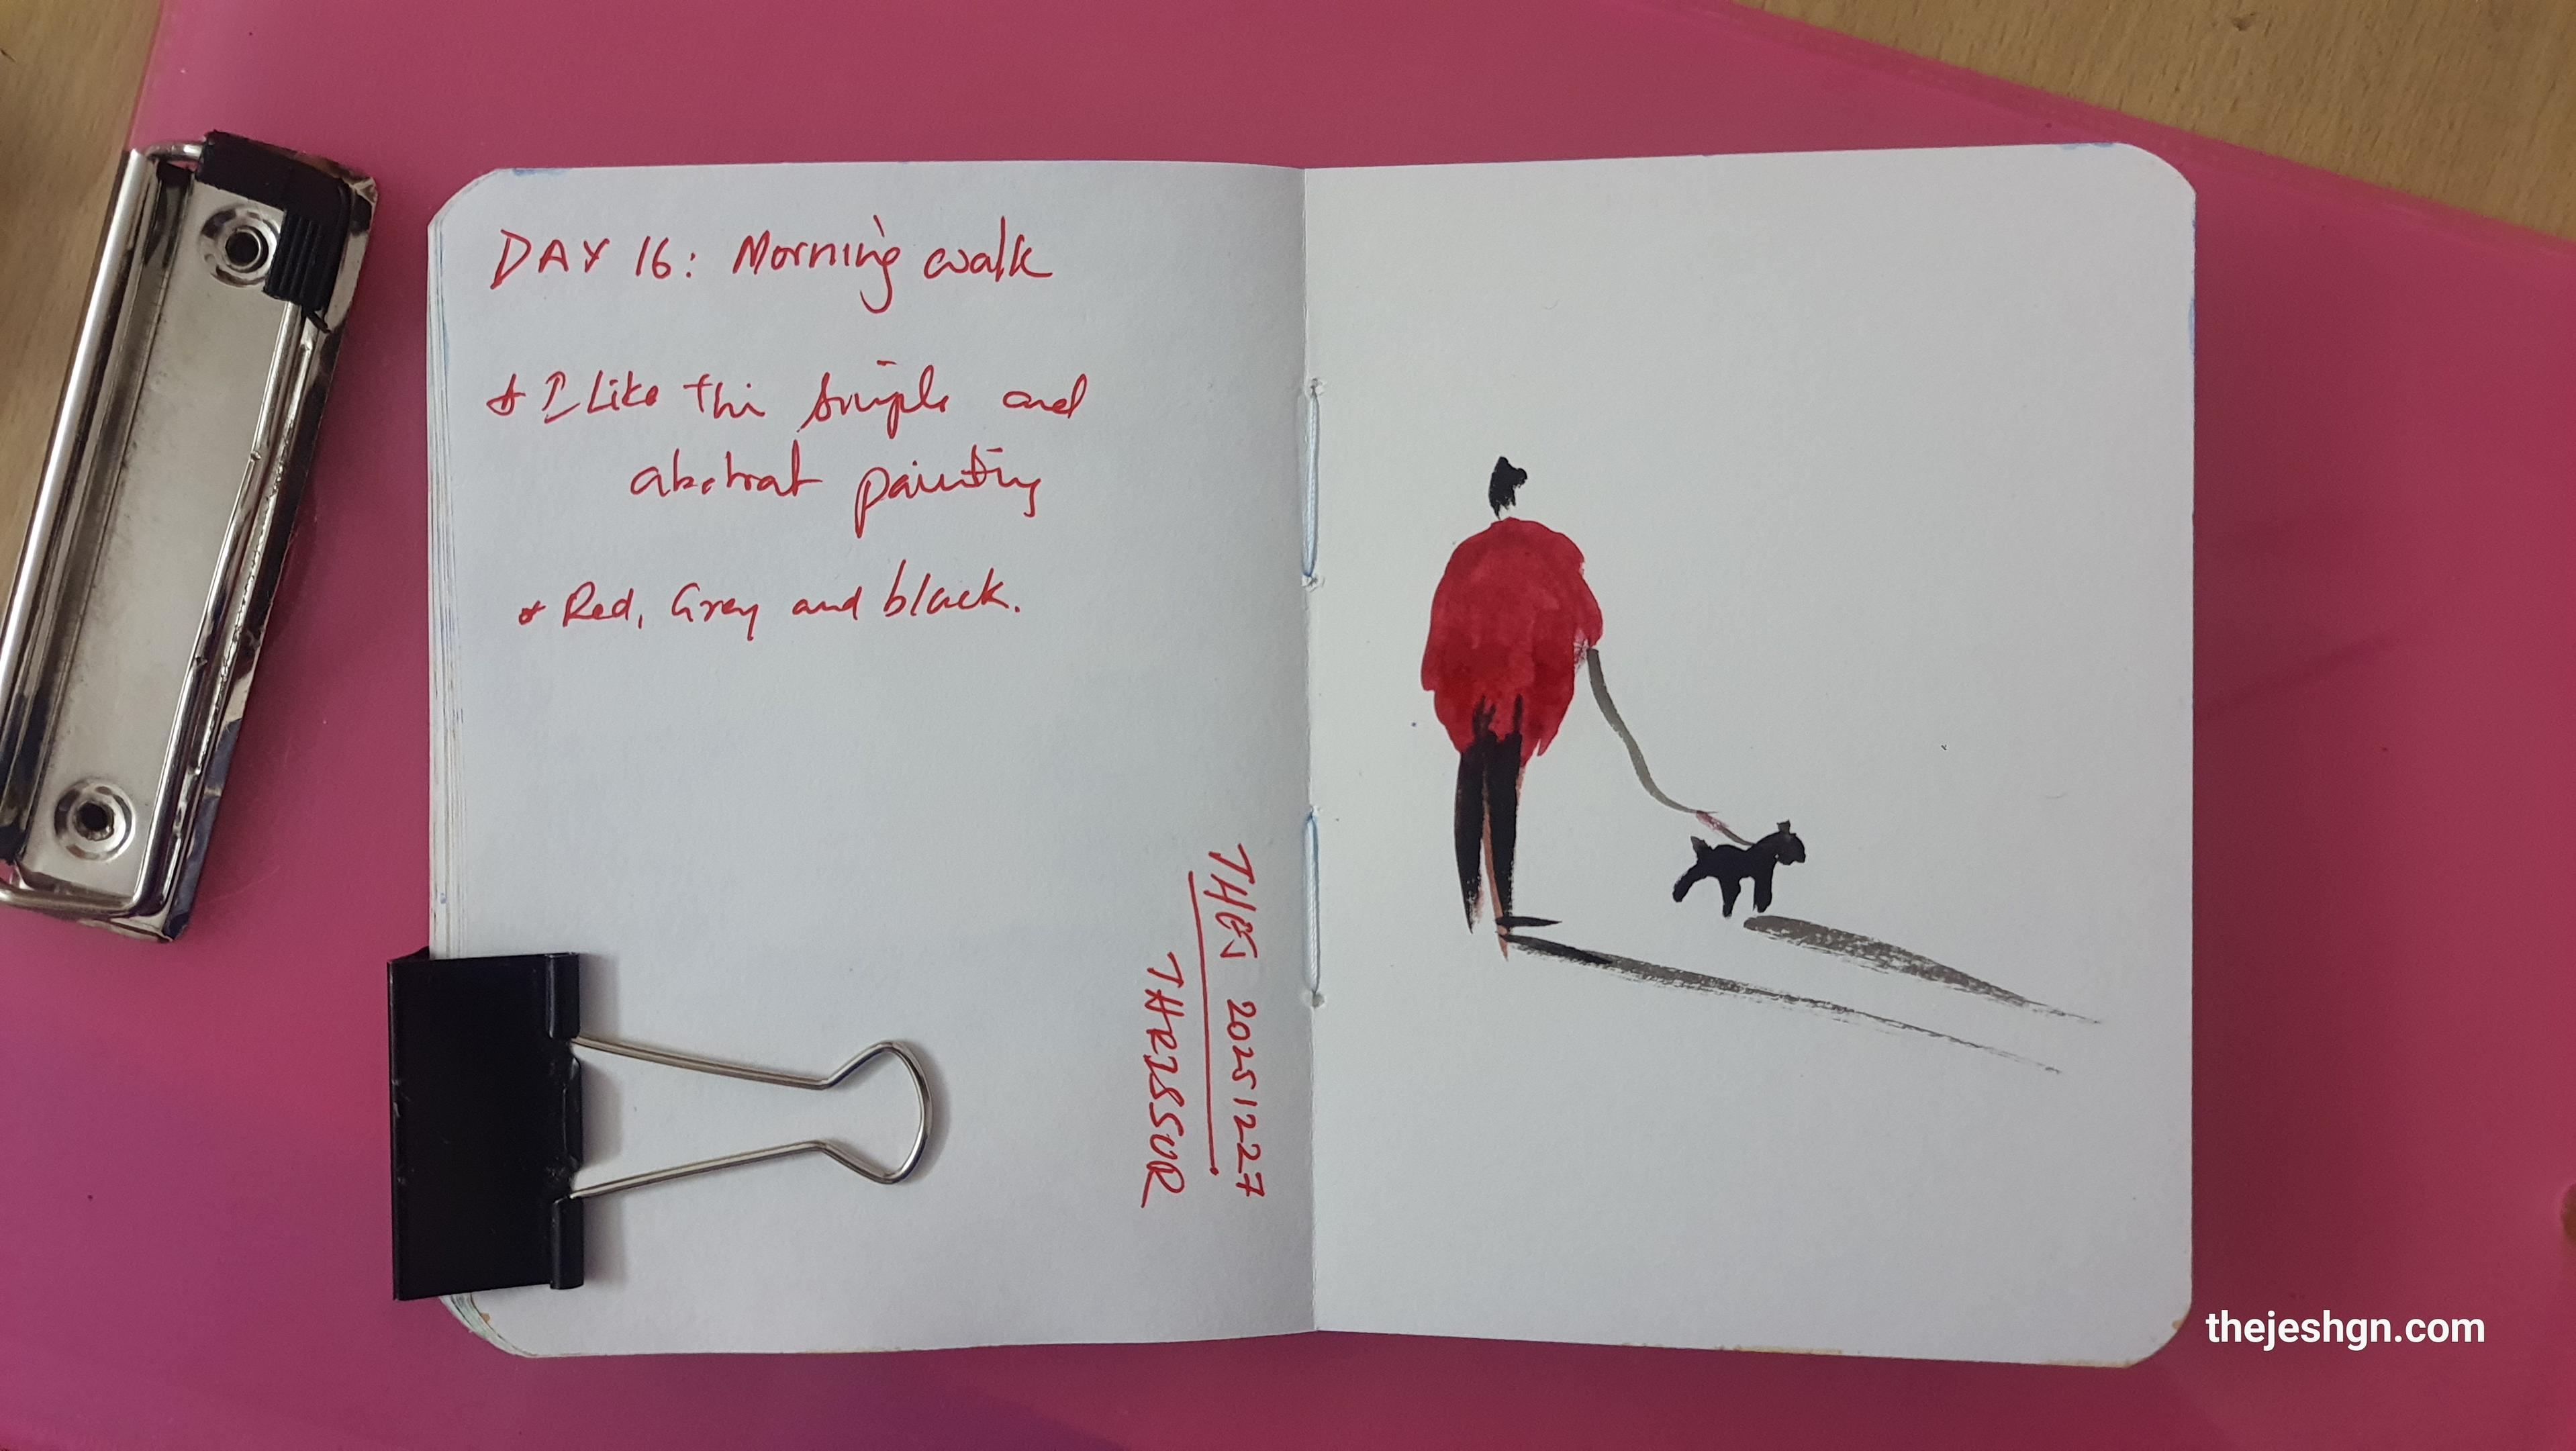 DAY 16: Morning walk
* I Like this simple and
abstract painting
* Red, Grey and black.
THEJ 20251227
THRISSUR
thejeshgn.com